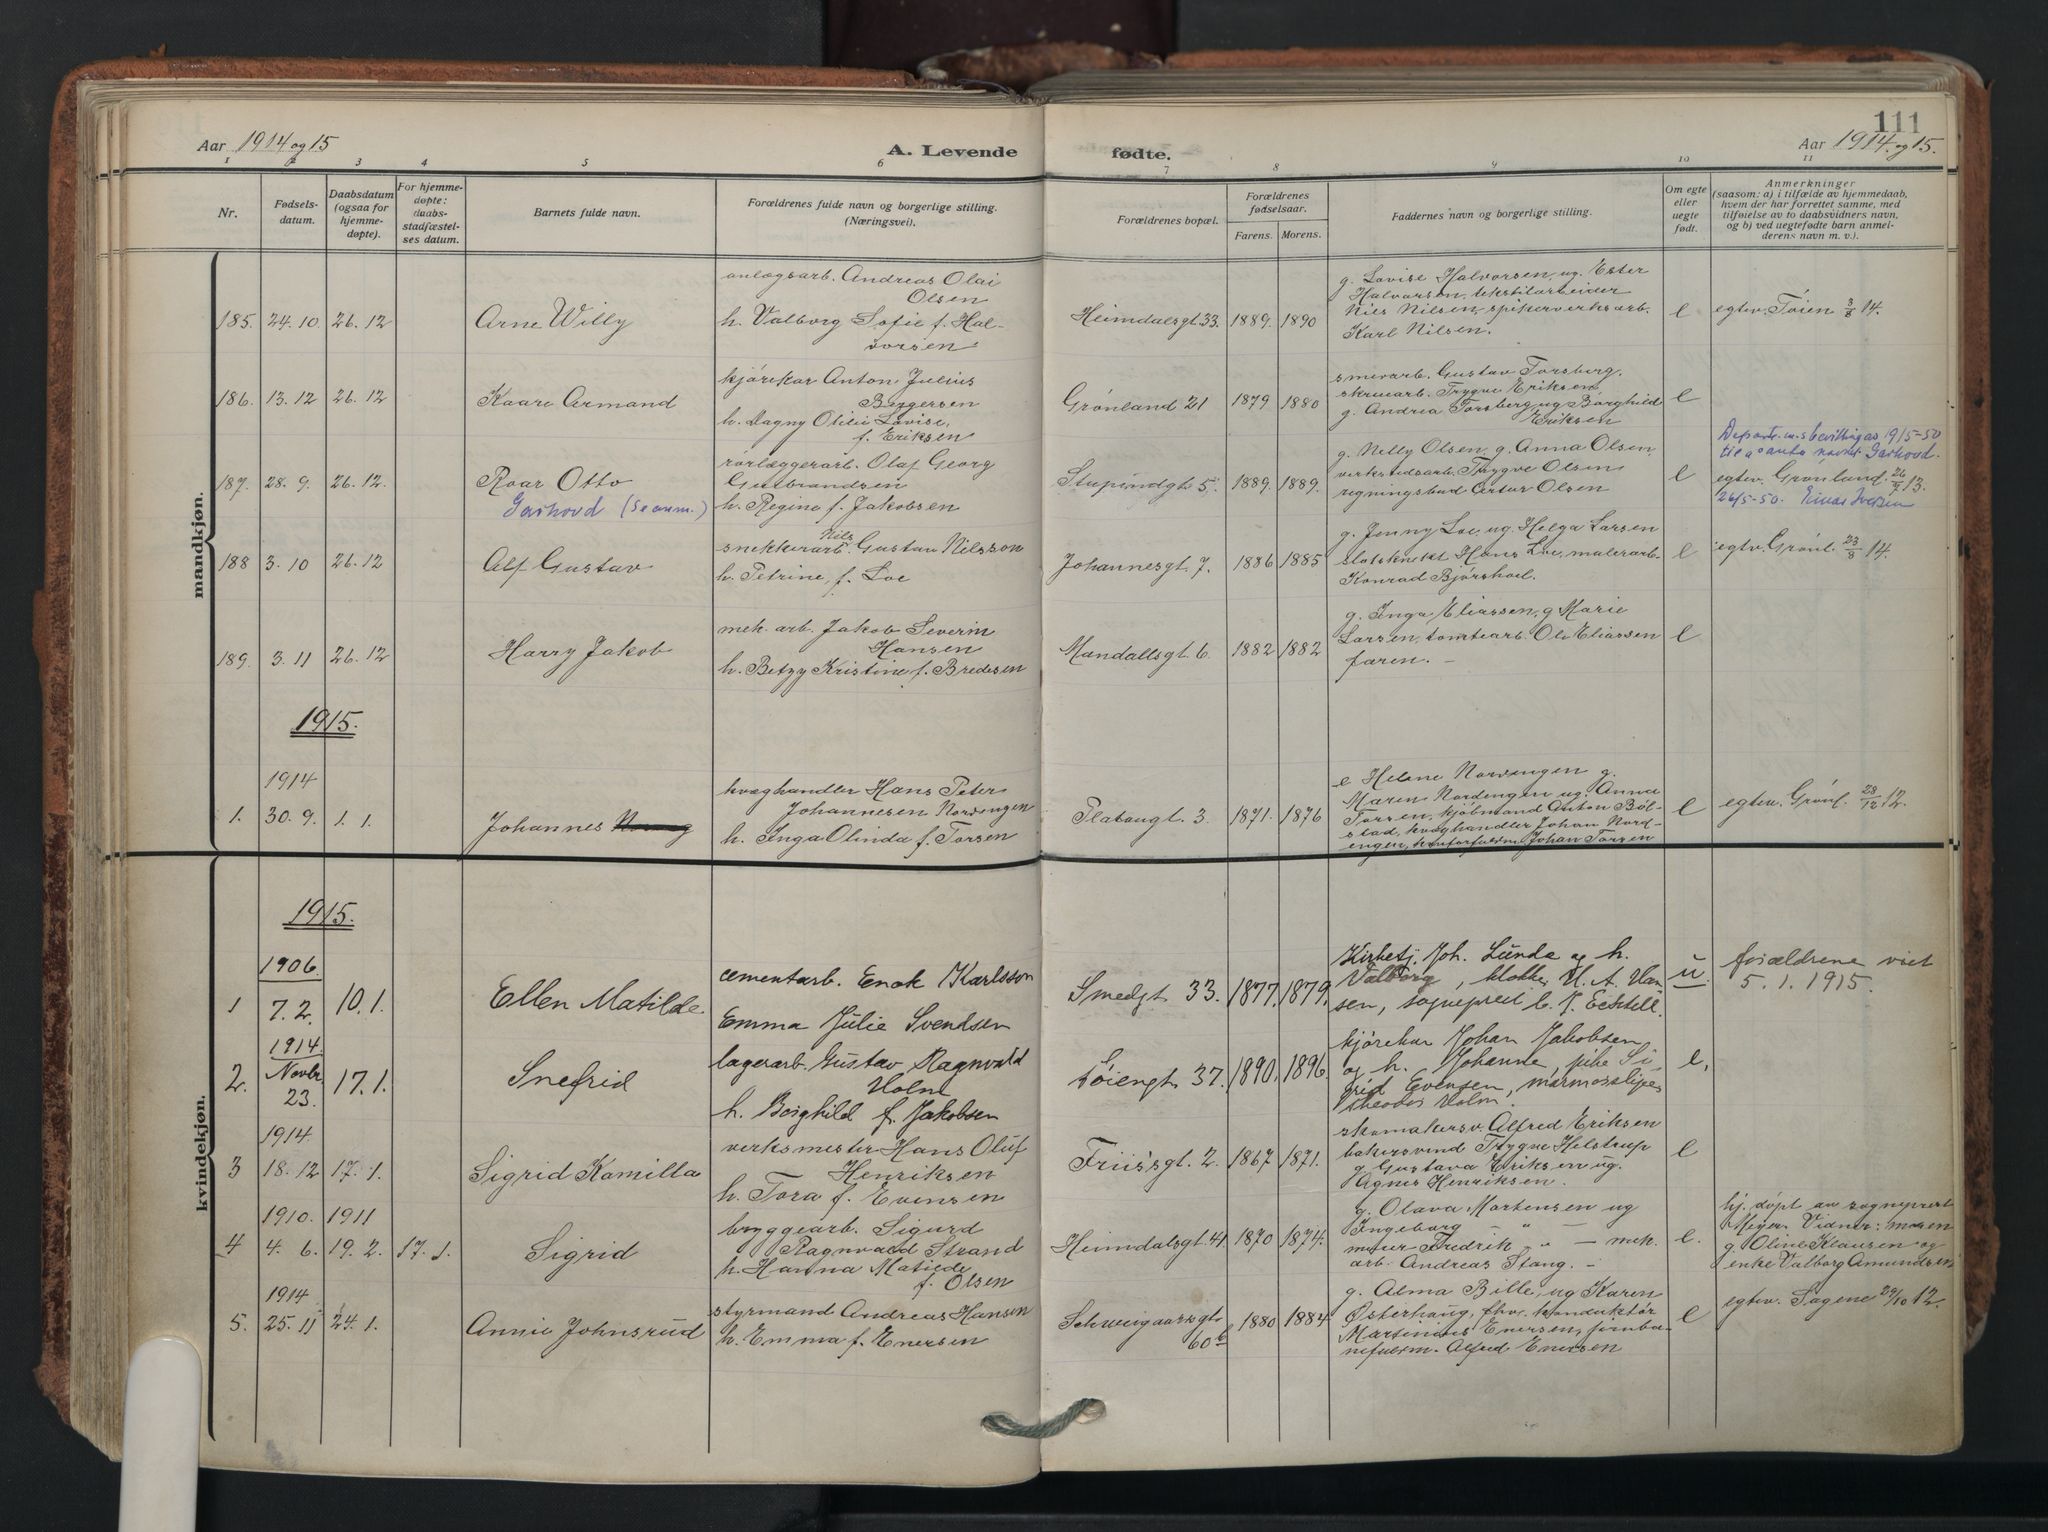 111
Aar 1914 og 15
A. Levende
fødte.
Aar 1914 og 15.
1 2 3 4 5 6 7 8 9 10 11
Nr.
Fødsels-
datum.
Daabsdatum
(ogsaa for
hjemme-
døpte).
For hjemme-
døpte:
daabs-
stadfæstel-
ses datum.
Barnets fulde navn.
Forældrenes fulde navn og borgerlige stilling.
(Næringsvei).
Forældrenes bopæl.
Forældrenes
fødselsaar.
Farens. Morens.
Faddernes navn og borgerlige stilling.
Om egte
eller
uegte
født.
Anmerkninger
(saasom: a) i tilfælde av hjemmedaab,
hvem der har forrettet samme, med
tilføielse av to daabsvidners navn,
og b) ved uegtefødte barn anmel-
derens navn m. v.).
mandkjøn.
185. 24. 10. 26. 12
Arne Willy
anlægsarb. Andreas Olai
Olsen
h. Valborg Sofie f. Hal-
vorsen
Heimdalsgt. 33. 1889. 1890
g. Lovise Halvorsen, ug. Ester
Halvorsen, tekstilarbeider
Nils Nilsen, spikerverksarb.
Karl Nilsen.
e
egtev. Tøien 3/8 14.
186. 13. 12 26. 12
Kaare Armand
kjørekar Anton Julius
Birgersen
h. Dagny Otilie Lovise,
f. Eriksen
Grønland 21 1879 1880
smedarb. Gustav Forsberg,
skruearb. Trygve Eriksen
g. Andrea Forsberg ug Borghild
Eriksen
e
187. 28. 9. 26. 12.
Roar Otto
Garhovd (se anm.)
rørlæggerarb. Olaf Georg
Gulbrandsen
h. Regine f. Jakobsen
Stupindgt. 5. 1889. 1889.
g. Nelly Olsen, g. Anna Olsen,
verkstedsarb. Trygve Olsen
regningsbud Artur Olsen
e
Departe.m.s bevilling av 19/5-50
til a anta navnet Garhovd.
egtev. Grønland 26/7 13.
26/5-50. Einar Iversen
188 3. 10 26. 12
Alf Gustav
snekkerarb. Nils Gustav Nilsson
h. Petrine, f. Loe
Johannesgt. 7. 1886 1885
g. Jenny Loe, ug. Helga Larsen
slotsknekt Hans Loe, malerarb.
Konrad Bjørshoel.
e
egtv. Grønl. 23/8 14.
189. 3. 11 26. 12
Harry Jakob
mek. arb. Jakob Severin
Hansen
h. Betzy Kristine f. Bredesen
Mandallsgt. 6. 1882 1882
g. Inga Eliassen, g Marie
Larsen, tomtearb. Ole Eliassen
faren. –
e
1915.
1914
1. 30. 9. 1. 1.
Johannes
kvæghandler Hans Peter
Johannesen Nordengen
h. Inga Olinda f. Torsen
Platougt. 3. 1871. 1876
e Helene Nordengen g.
Maren Nordengen ug. Anna
Torsen, kjøbmand Anton Bøl-
stad, kvæghandler Johan Nord-
engen, Johan Torsen
e
egtev. Grønl. 28/12 12.
kvindekjøn.
1915.
1906.
1 7. 2. 10. 1.
Ellen Matilde
cementarb. Enok Karlsson
Emma Julie Svendsen
Smedgt 33. 1877. 1879.
Kirketj. Joh. Lunde og h.
Valborg, klokker H. A. Han-
sen, sogneprest C. J. Eckell.
u.
forældrene viet
5. 1. 1915.
1914.
2. Novbr. 23. 17. 1.
Snefrid
lagerarb. Gustav Ragnvald
Holm
h. Borghild f. Jakobsen
Tøiengt 37. 1890. 1896.
kjørekar Johan Jakobsen
og h. Johanne, pike Si-
grid Evensen, marmorsliper
Theodor Holm.
e,
1914.
3 18. 12 17. 1.
Sigrid Kamilla
verksmester Hans Oluf
Henriksen
h. Tora f. Evensen
Friisgt. 2. 1867 1871.
skomakersv. Alfred Eriksen
bakersvend Trygve Helstrup
g. Gustava Eriksen ug.
Agnes Henriksen.
e
1910. 1911
4 4. 6. 19. 2. 17. 1.
Sigrid
bryggearb. Sigurd
Ragnvald Strand
h. Hanna Matilde
f. Olsen
Heimdalsgt. 41 1870 1874.
g. Olava Mortensen ug
Ingeborg – " –
murer Fredrik " – mek.
arb. Andreas Stang. –
e.
hj. døpt av sogneprest
Meyer. Vidner: moren
g. Oline Klausen og
enke Valborg Amundsen
1914
5. 25. 11 24. 1.
Annie Johnsrud
styrmand Andreas Hansen
h. Emma f. Enersen
Schweigaardsgt. 60 b 1880 1884
g. Alma Bille, ug Karen
Østerhaug, fhv. konduktør
Martinius Enersen, jernba-
nefuldm. Alfred Enersen
e
egtev. Sagene 29/10 12.